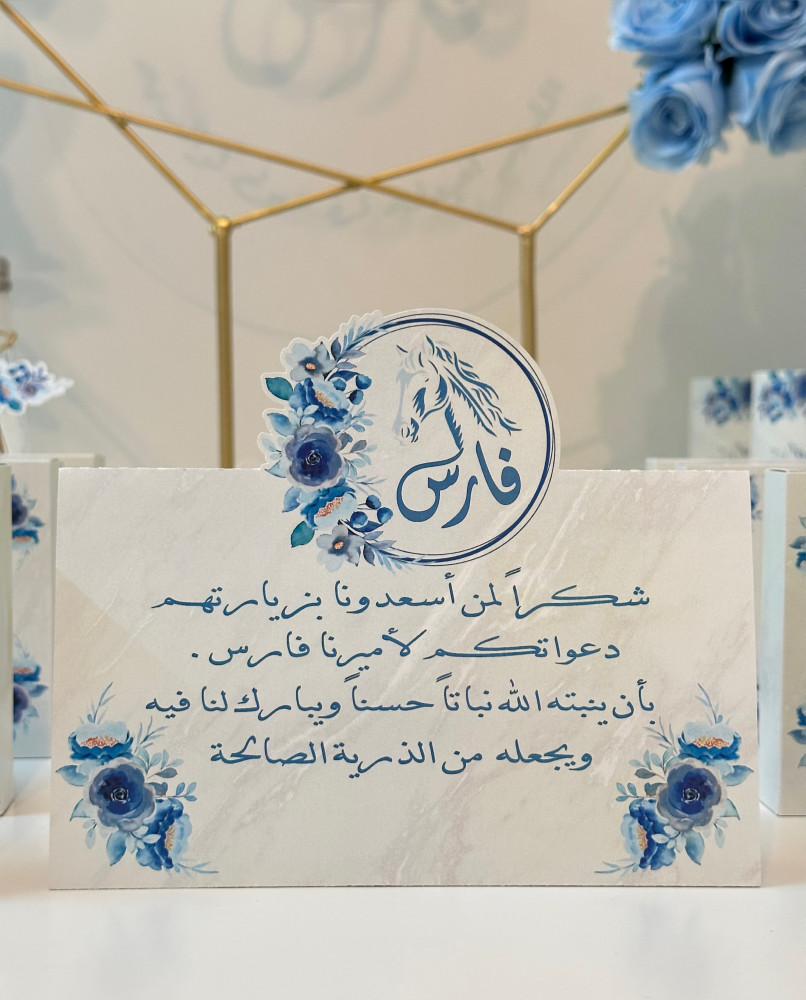 فارس
شكراً لمن أسعدونا بزيارتهم
دعواتكم لأميرنا فارس .
بأن ينبته الله نباتاً حسناً ويبارك لنا فيه
ويجعله من الذرية الصالحة